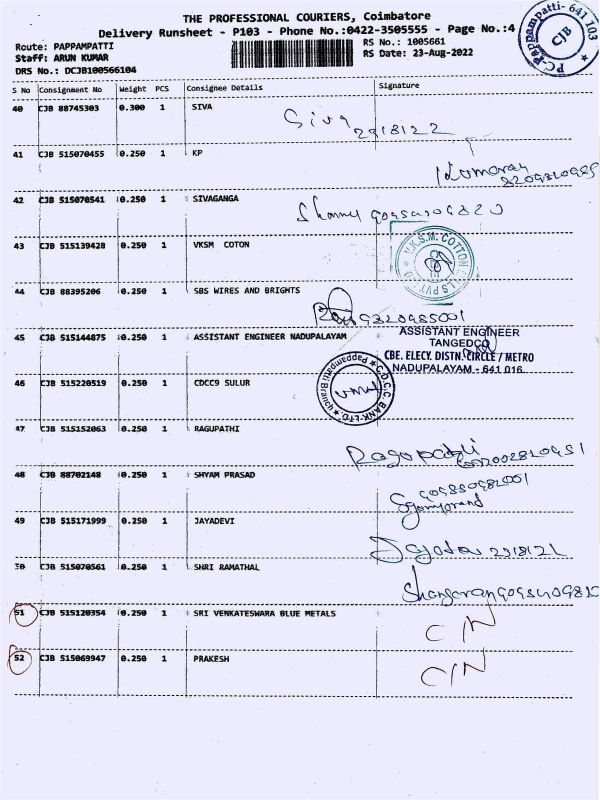 THE PROFESSIONAL COURIERS, Coimbatore
Delivery Runsheet - P103 - Phone No.:0422-3505555 - Page No.:4
Route: PAPPAMPATTI
Staff: ARUN KUMAR
DRS No.: DCJB100566104
RS No.: 1005661
RS Date: 23-Aug-2022
Pappampatti- 641 103
P.C.
CJB
S No Consignment No Weight PCS Consignee Details Signature
40 CJB 88745303 0.300 1 SIVA
Siva
41 CJB 515070455 0.250 1 KP
Kumaran
42 CJB 515070541 0.250 1 SIVAGANGA
43 CJB 515139428 0.250 1 VKSM COTON
V.K.S.M. COTTON
44 CJB 88395206 0.250 1 SBS WIRES AND BRIGHTS
9320985001
45 CJB 515144875 0.250 1 ASSISTANT ENGINEER NADUPALAYAM
ASSISTANT ENGINEER
TANGEDCO
CBE. ELECY. DISTN. CIRCLE / METRO
NADUPALAYAM - 641 016.
46 CJB 515220519 0.250 1 CDCC9 SULUR
C.D.C.C. BANK-LTD
Pappampatti Branch
47 CJB 515152063 0.250 1 RAGUPATHI
48 CJB 88702148 0.250 1 SHYAM PRASAD
49 CJB 515171999 0.250 1 JAYADEVI
50 CJB 515070561 0.250 1 SHRI RAMATHAL
51 CJB 515120354 0.250 1 SRI VENKATESWARA BLUE METALS
C/N
52 CJB 515069947 0.250 1 PRAKESH
C/N